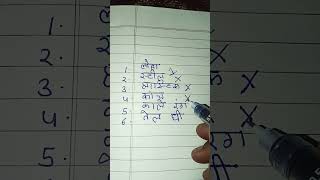 1. लोहा
2. स्टील x
3. प्लास्टिक x
4. काँच x
5. काले रंग
6. तेल घी